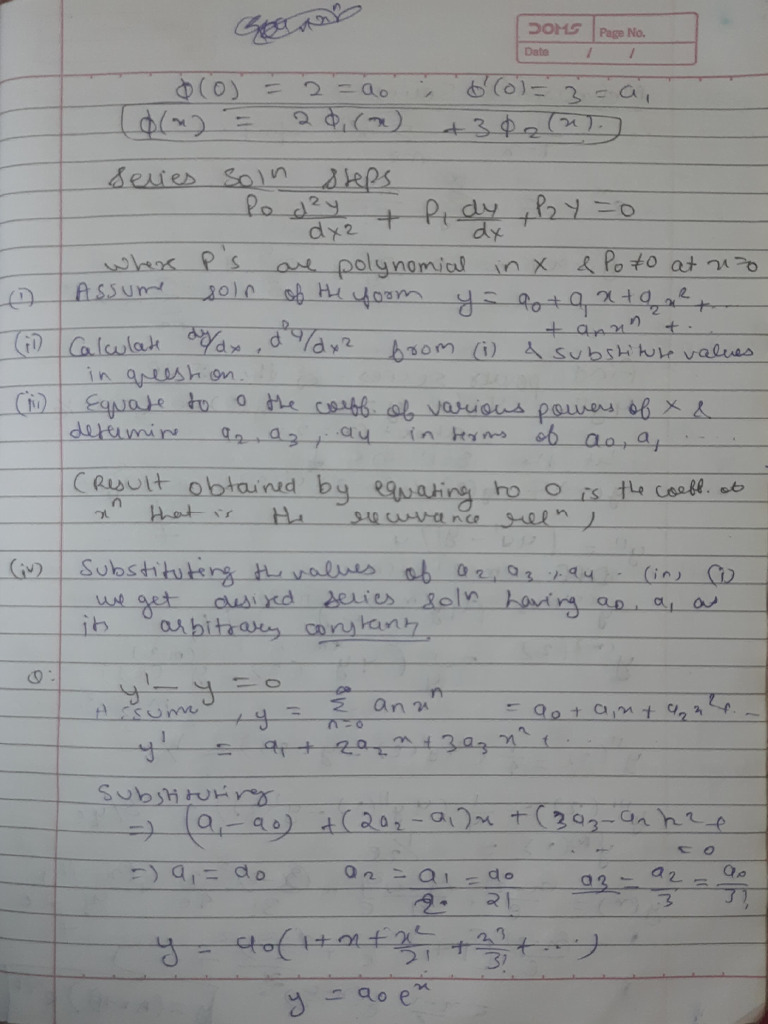 DOMS Page No.
Date / /
ϕ(0) = 2 = a₀ ; ϕ'(0) = 3 = a₁
ϕ(x) = 2ϕ₁(x) + 3ϕ₂(x).
Series Soln Steps
P₀ d²y/dx² + P₁ dy/dx , P₂y = 0
where P's are polynomial in x & P₀ ≠ 0 at x=0
(i) Assume soln of the form y = a₀ + a₁x + a₂x² + ...
+ aₙxⁿ + ..
(ii) Calculate dy/dx, d²y/dx² from (i) & substitute values
in question.
(iii) Equate to 0 the coeff. of various powers of x &
determine a₂, a₃, .. a₄ in terms of a₀, a₁ ....
(Result obtained by equating to 0 is the coeff. of
xⁿ that is the recurrance relⁿ)
(iv) Substituting the values of a₂, a₃, .. a₄ . (in) (i)
we get desired series soln having a₀, a₁ as
its arbitrary constants.
Q: y' - y = 0
Assume , y = ∞ Σ n=0 aₙxⁿ = a₀ + a₁x + a₂x² + ...
y' = a₁ + 2a₂x + 3a₃x² + ...
Substituting
=) (a₁ - a₀) + (2a₂ - a₁)x + (3a₃ - a₂)x² +
.... = 0
=) a₁ = a₀ a₂ = a₁/2 = a₀/2! a₃ = a₂/3 = a₀/3!
y = a₀(1 + x + x²/2! + x³/3! + ...)
y = a₀eˣ